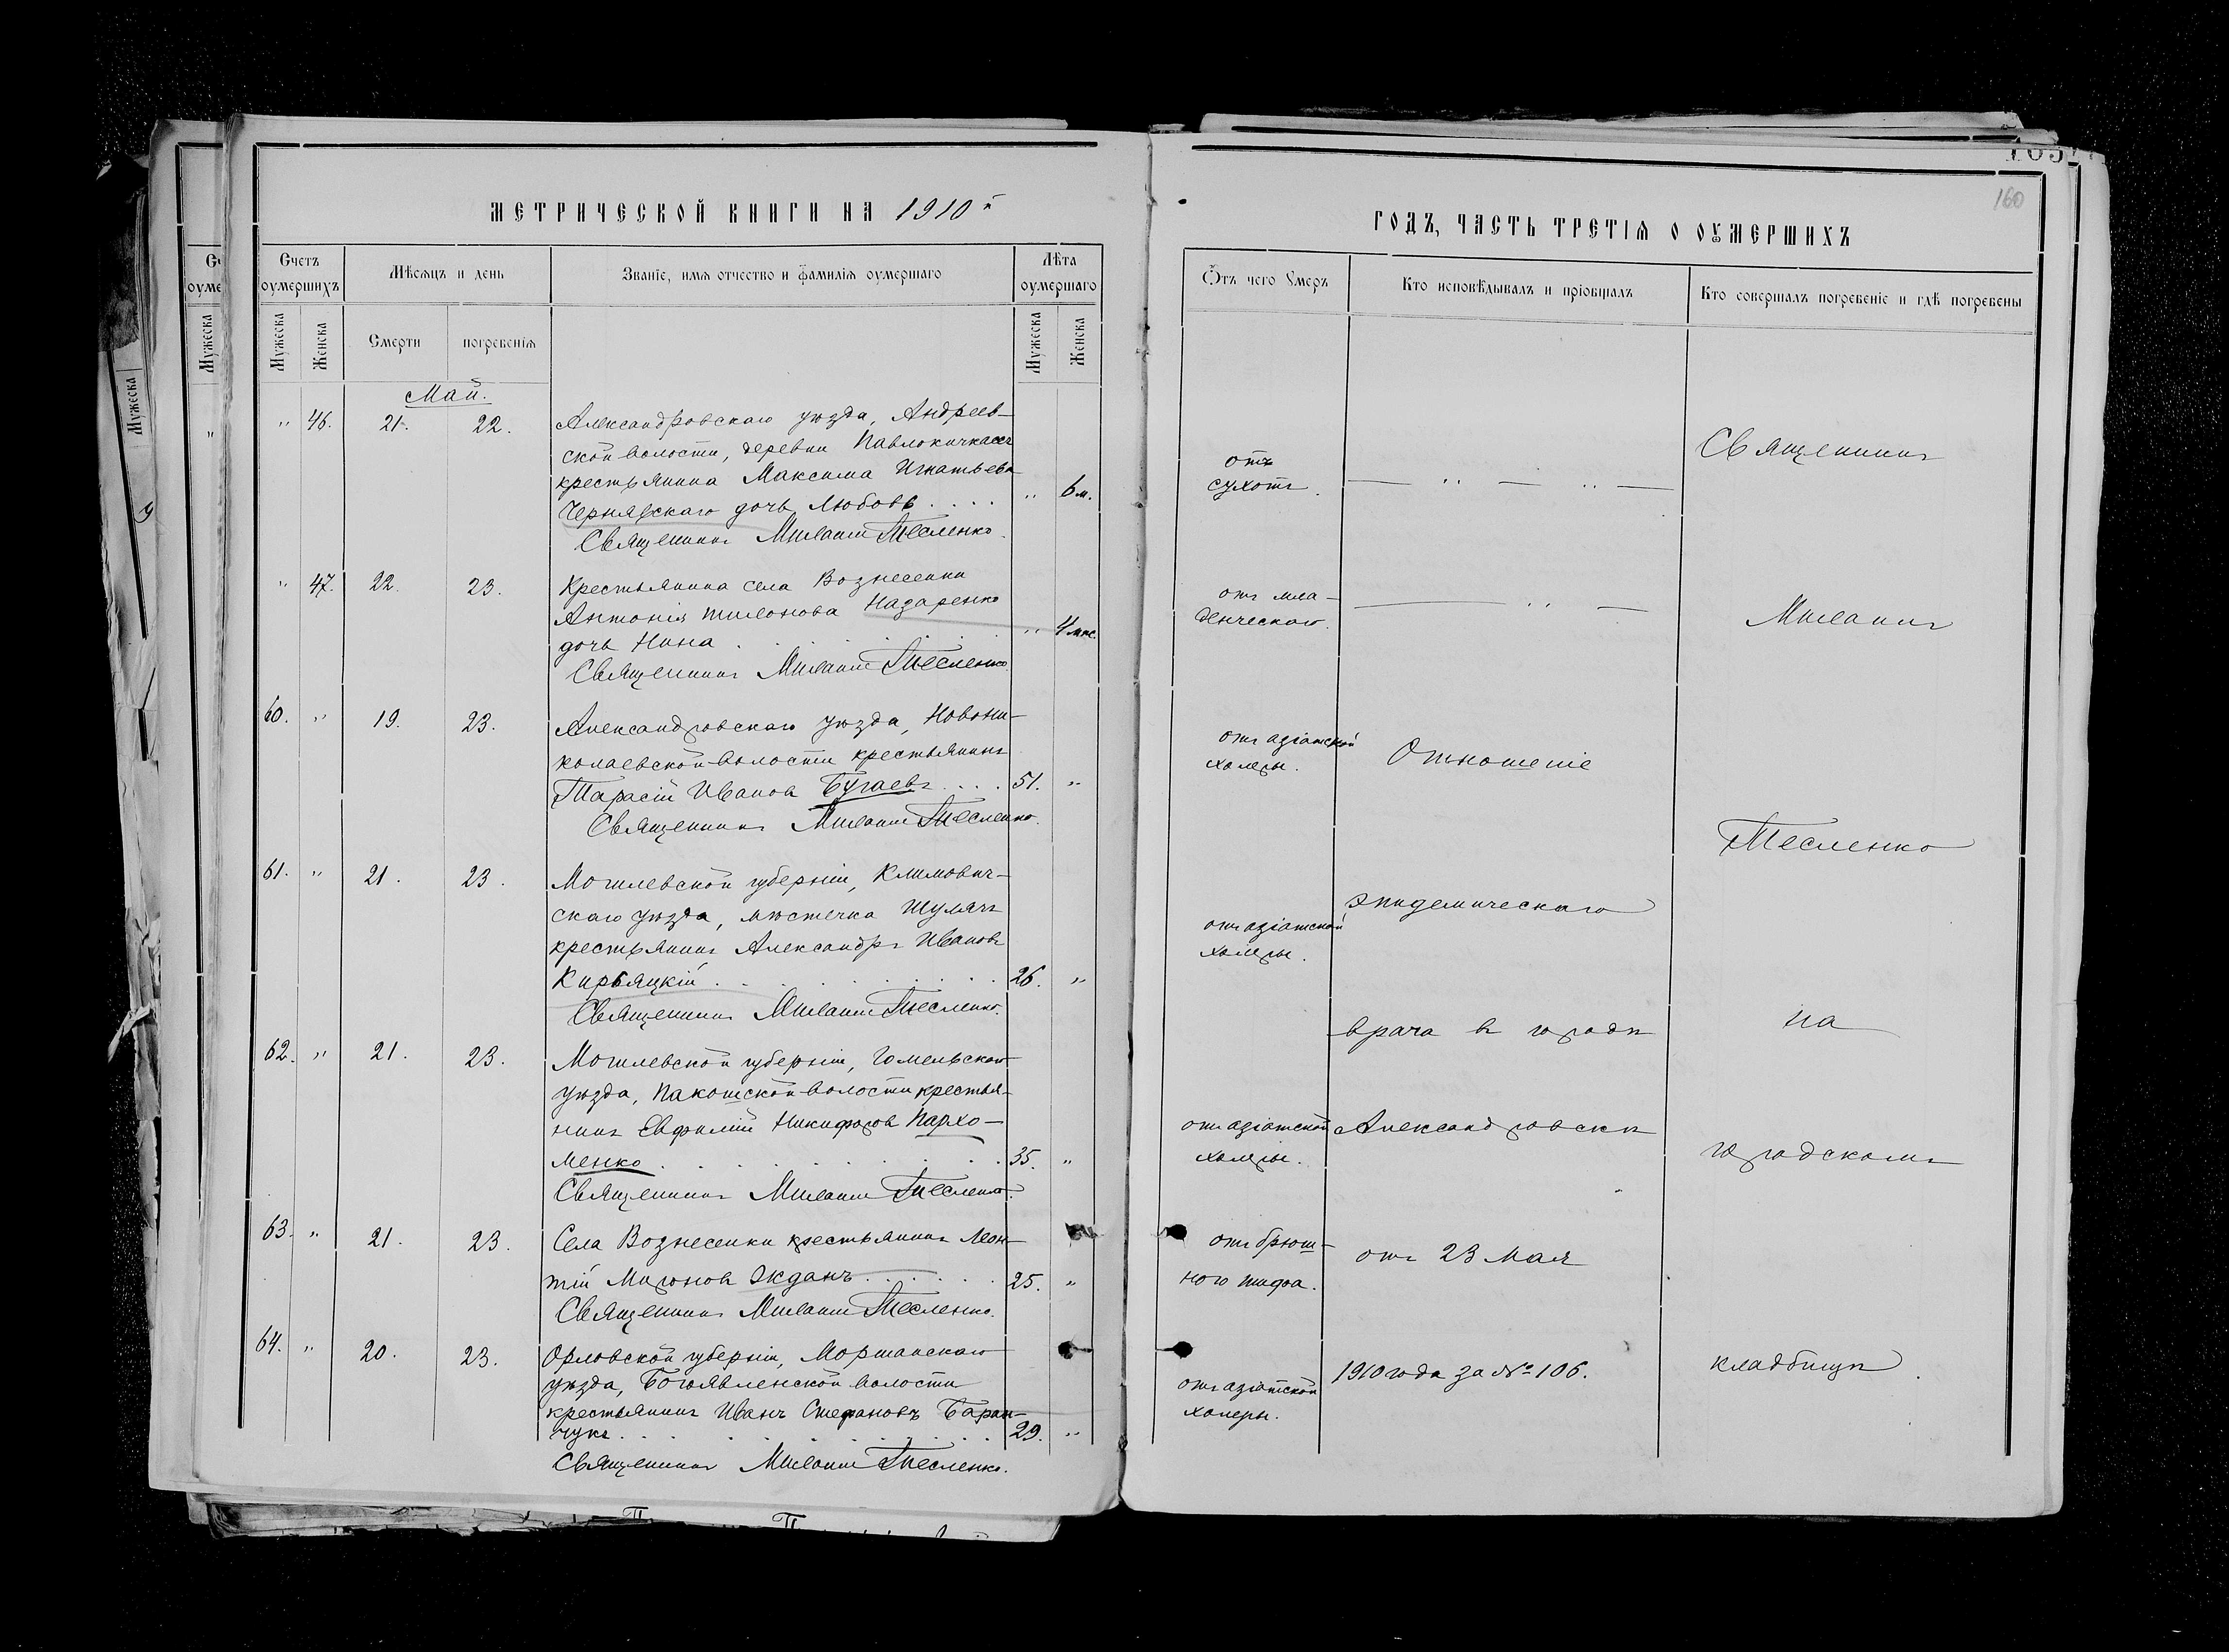 МЕТРИЧЕСКОЙ КНИГИ НА 1910й
Счетъ оумершихъ
Мѣсяцъ и день
Званіе, имя отчество и фамилія оумершаго
Лѣта оумершаго
Мужеска
Женска
Смерти
погребенія
Мужеска
Женска
Май.
" 46. 21. 22. Александровскаго уѣзда, Андреев-
ской волости, деревни Павлокичкасъ
крестьянина Максима Игнатьева
Чернявскаго дочь Любовь . . . . " 6 м.
Священникъ Тесленко.
" 47. 22. 23. Крестьянина села Вознесенки
Антонія Назаренко
дочь Нина . . . . . " 4 мѣс.
Священникъ Тесленко
60. " 19. 23. Александровскаго уѣзда, Новони-
колаевской волости крестьянинъ
Тарасій Иванов Бугаевъ . . . . 51. "
Священникъ Тесленко.
61. " 21. 23. Могилевской губерніи, Климович-
скаго уѣзда, мѣстечка Шумячъ
крестьянинъ Александръ Ивановъ
Кирьяцкій . . . . . . . 26. "
Священникъ Тесленко.
62. " 21. 23. Могилевской губерніи, Гомельскаго
уѣзда, волости крестья-
нинъ Евфимій Никифоров Пархо-
менко . . . . . . . . 35. "
Священникъ Тесленко.
63. " 21. 23. Села Вознесенки крестьянинъ Леон-
тій Миронов Жданъ . . . . . 25. "
Священникъ Тесленко.
64. " 20. 23. Орловской губерніи, Моршанскаго
уѣзда, Богоявленской волости
крестьянинъ Иванъ Стефановъ Баран-
чукъ . . . . . . . . . 29. "
Священникъ Тесленко.
160
ГОДЪ, ЧАСТЬ ТРЕТІЯ О ОУМЕРШИХЪ
Отъ чего умеръ
Кто исповѣдывалъ и пріобщалъ
Кто совершалъ погребеніе и гдѣ погребены
отъ
сухотъ.
отъ мла-
денческаго.
отъ азіатской
холеры.
отъ азіатской
холеры.
отъ азіатской
холеры.
отъ брюш-
ного тифа.
отъ азіатской
холеры.
Отношеніе
эпидемическаго
врача въ городѣ
Александровскѣ
отъ 23 Мая
1910 года за № 106.
Священникъ
Тесленко
на
городскомъ
кладбищѣ.